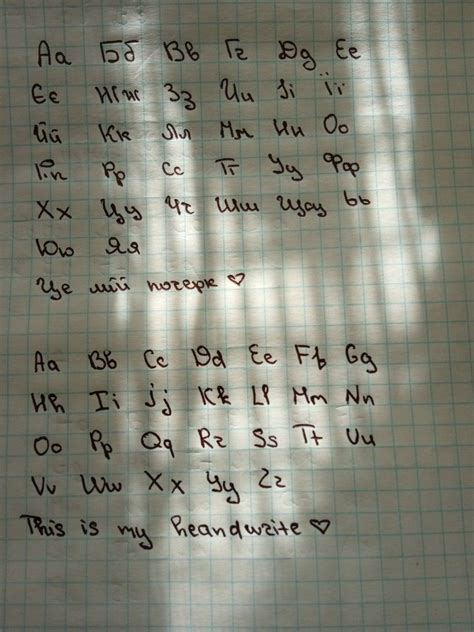 Аа Бб Вв Гг Дд Ее
Єє Жж Зз Ии Іі Її
Йй Кк Лл Мм Нн Оо
Пп Рр Сс Тт Уу Фф
Хх Цц Чч Шш Щщ Ьь
Юю Яя
Це мій почерк ♡
Aa Bb Cc Dd Ee Ff Gg
Hh Ii Jj Kk Ll Mm Nn
Oo Pp Qq Rr Ss Tt Uu
Vv Ww Xx Yy Zz
This is my heandwrite ♡